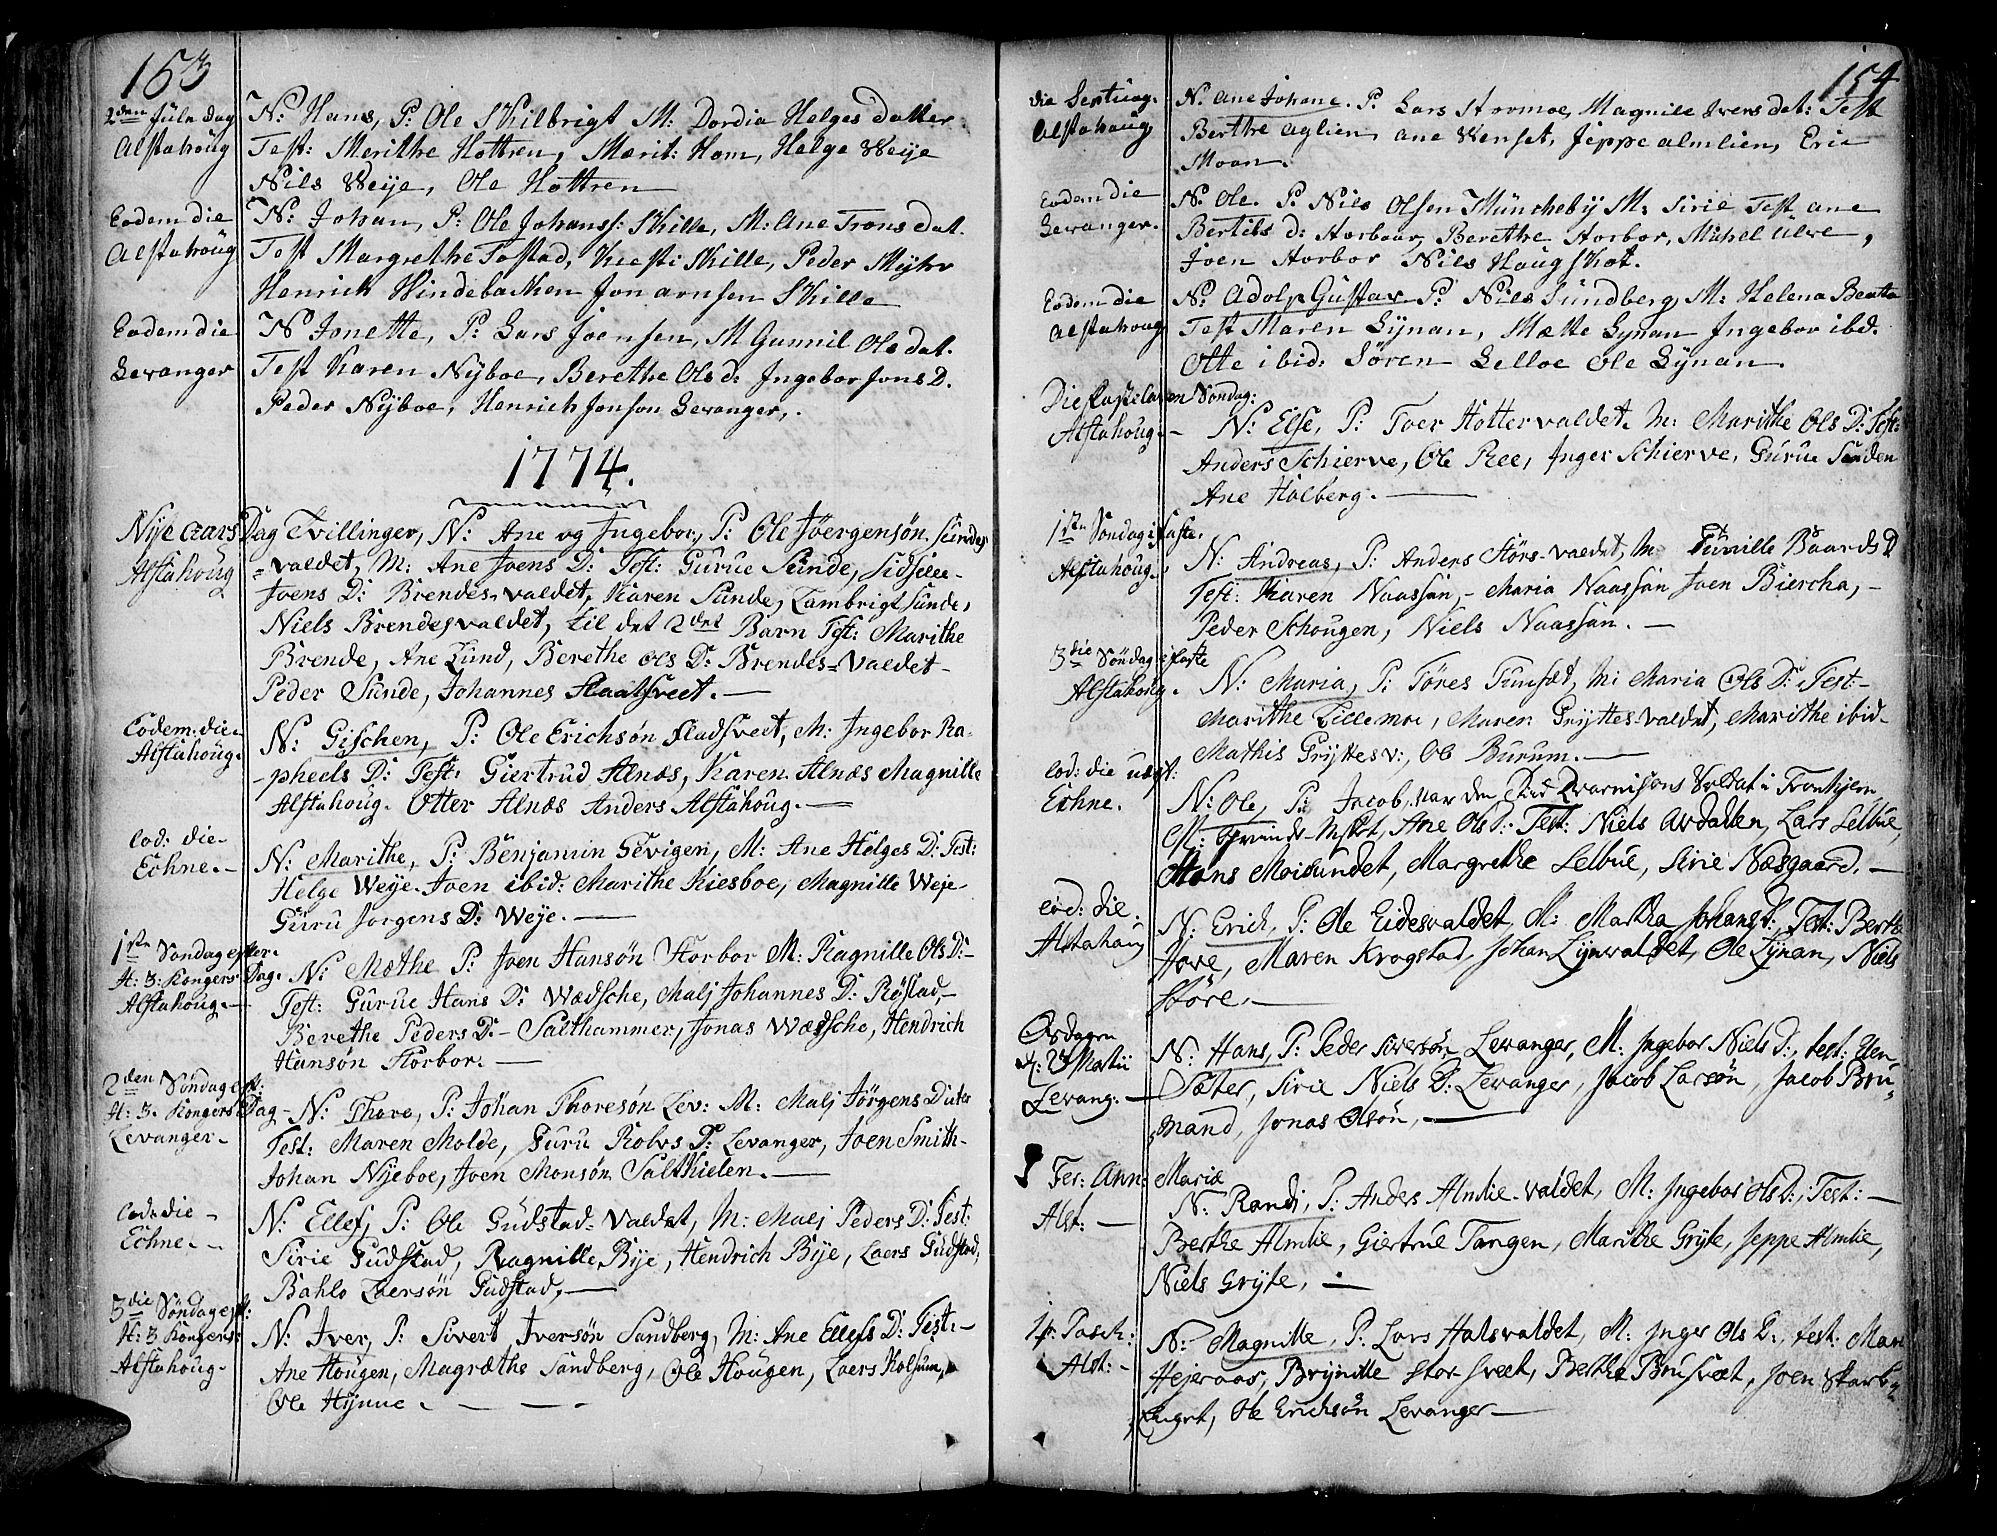 153
2den Jule Dag N: Hans, P: Ole Skilbrigt M: Dordia Helges datter
Alstahoug Test: Merithe Hottren, Mærit: Hom, Helge Weije
Nils Weije, Ole Hottren
Eodem die N: Johan, P: Ole Johanss: Skille, M: Ane Trons dat.
Alstahoug Test Margrethe Tostad, Kiesti Skille, Peder Myhr
Henrich Hindebachen Jon arnsen Skille
Eodem die N Jonette, P: Lars Joensen, M Gunnil Ols dat.
Levanger Test Karen Nijboe, Berethe Ols d: Ingebor Jons D.
Peder Nijboe, Henrich Jonson Levanger,.
1774.
Nije aars Dag Tvillinger, N: Ane og Ingebor, P: Ole Joergensøn Sundes
Alstahoug =valdet, M: Ane Joens D: Test: Gurue Sunde, Sidselle
Joens D: Brendes-valdet, Karen Sunde, Lambrigt Sunde,
Niels Brendesvaldet, til det 2det Barn Test: Marithe
Brende, Ane Lund, Berethe Ols D: Brendes=valdet-
Peder Sunde, Johannes Flaatsveet.
Eodem die N: Gischen, P: Ole Erichsøn Fladsveet, M: Ingebor Ra-
Alstahoug. -pheels D: Test: Giertrud Alnæs, Karen Alnæs Magnille
Alstahoug. Otter Alnæs Anders Alstahoug.
Eod: die N: Marithe, P: Benjamin Gevigen, M: Ane Helges D: Test:
Echne. Helge Weije. Joen ibid: Marithe Kiesboe, Magnille Weje
Guru Jorgens D: Weye.
1ste Søndag efter
H: 3. Kongers Dag. N: Mæthe P: Joen Hansøn Storbor M: Ragnille Ols D:
Alstahoug. Test: Gurue Hans D: Wædsche, Malj Johannes D: Røstad,
Berethe Peders D: Salthammer, Jonas Wædsche, Hendrich
Hansøn Storbor.
2den Søndag eft:
H: 3. Kongers Dag N: Thore, P: Johan Thoresøn Lev: M: Malj Jørgens Dater
Levanger Test: Maren Molde, Guru Robvs D: Levanger, Joen Smith
Johan Nijeboe, Joen Monsøn Salthielen.
Eod: die N: Ellef, P: Ole Gudstad-valdet, M: Malj Peders D: Test:
Echne. Sirie Gudstad, Ragnille Bije, Hendrich Bije, Laers Gudstad,
Bahlo Laersøn Gudstad,
3die Søndag eft:
H: 3 Kongers: N: Iver, P: Sivert Iversøn Sandberg, M: Ane Ellefs D: Test:
Alstahoug Ane Hougen, Magrethe Sandberg, Ole Hougen, Laers Holsum,
Ole Hijnne.
154
die Septuag. N: Ane Johane. P. Lars Stormoe, Magnile Ivers dat: Test
Alstahoug Berthe Aglien, ane Wenset, Jeppe almlien, Eric
Moan.
Eodem die N: Ole. P: Nils Olsen Müncheby M: Sirie Test ane
Levanger. Bertils d: Storboar, Berethe Storbor, Michel Ulve,
Joen Storbor Nils Haugskot.
Eodem die N: Adolp Gustav P: Nils Sundberg, M: Helena Beata
Alstahoug Test Maren Lynan, Mætte Lynan Ingebor ibd.
Otte ibid: Søren Lelloe Ole Lynan.
Die Fastelaven Søndag:
Alstahoug. N: Else, P: Toer Hottervaldet. M: Marithe Ols D: Test:
Anders Schierve, Ole Ree, Inger Schierve, Gurue Sunden
Ane Halberg.
1ste Søndag i faste.
Alstahoug. N: Andreas, P: Anders Størs-valdet, M: Gunille Baards D
Test: Karen Naassan, Maria Naassan Joen Biercha,
Peder Schougen, Niels Naassan.
3die Søndag i faste
Alstahoug. N: Maria, P: Töres Tunsæt, M: Maria Ols D: Test:
Marithe Lillemoe, Maren Gryttesvaldet, Marithe ibid
Mathis Gryttesv:, Ole Burum.
Eod: die uægt:
Echne. N: Ole, P: Jacob, var den Tid Qvarnisons Soldat i Tronhjem
M: Qvinds-, Ane Ols D: Test: Niels Ardalen, Lars Selbue,
Hans Moisundet, Margrethe Selbue, Sirie Næsgaard.
Eod: die. N: Erich, P: Ole Eidesvaldet, M: Martha Johans D: Test: Berthe
Alstahoug Hove, Maren Krogstad, Johan Lynvaldet, Ole Lynan, Niels
Støre.
Onsdagen
d: 23 Martii N: Hans, P: Peder Siversøn Levanger, M: Ingebor Niels D:, test: Hen
Levang. Sæter, Sirie Niels D: Levanger, Jacob Larsøn, Jacob Bru-
mand, Jonas Olsøn,
Fer: Ann: Mariæ
Alst: N: Randi, P: Anders Almlie-valdet, M: Ingebor Ols D:, Test:
Berthe Almlie, Giertrue Tangen, Marithe Gryte, Jeppe Almlie,
Niels Gryte,
1. p. Pasch: N: Magnille, P: Lars Halsvaldet, M: Inger Ols D:, test: Mari
Alst: Hejeraas, Brynille Storsveet, Berthe Brusvæt, Joen Skarb
Ole Erichsøn Levanger